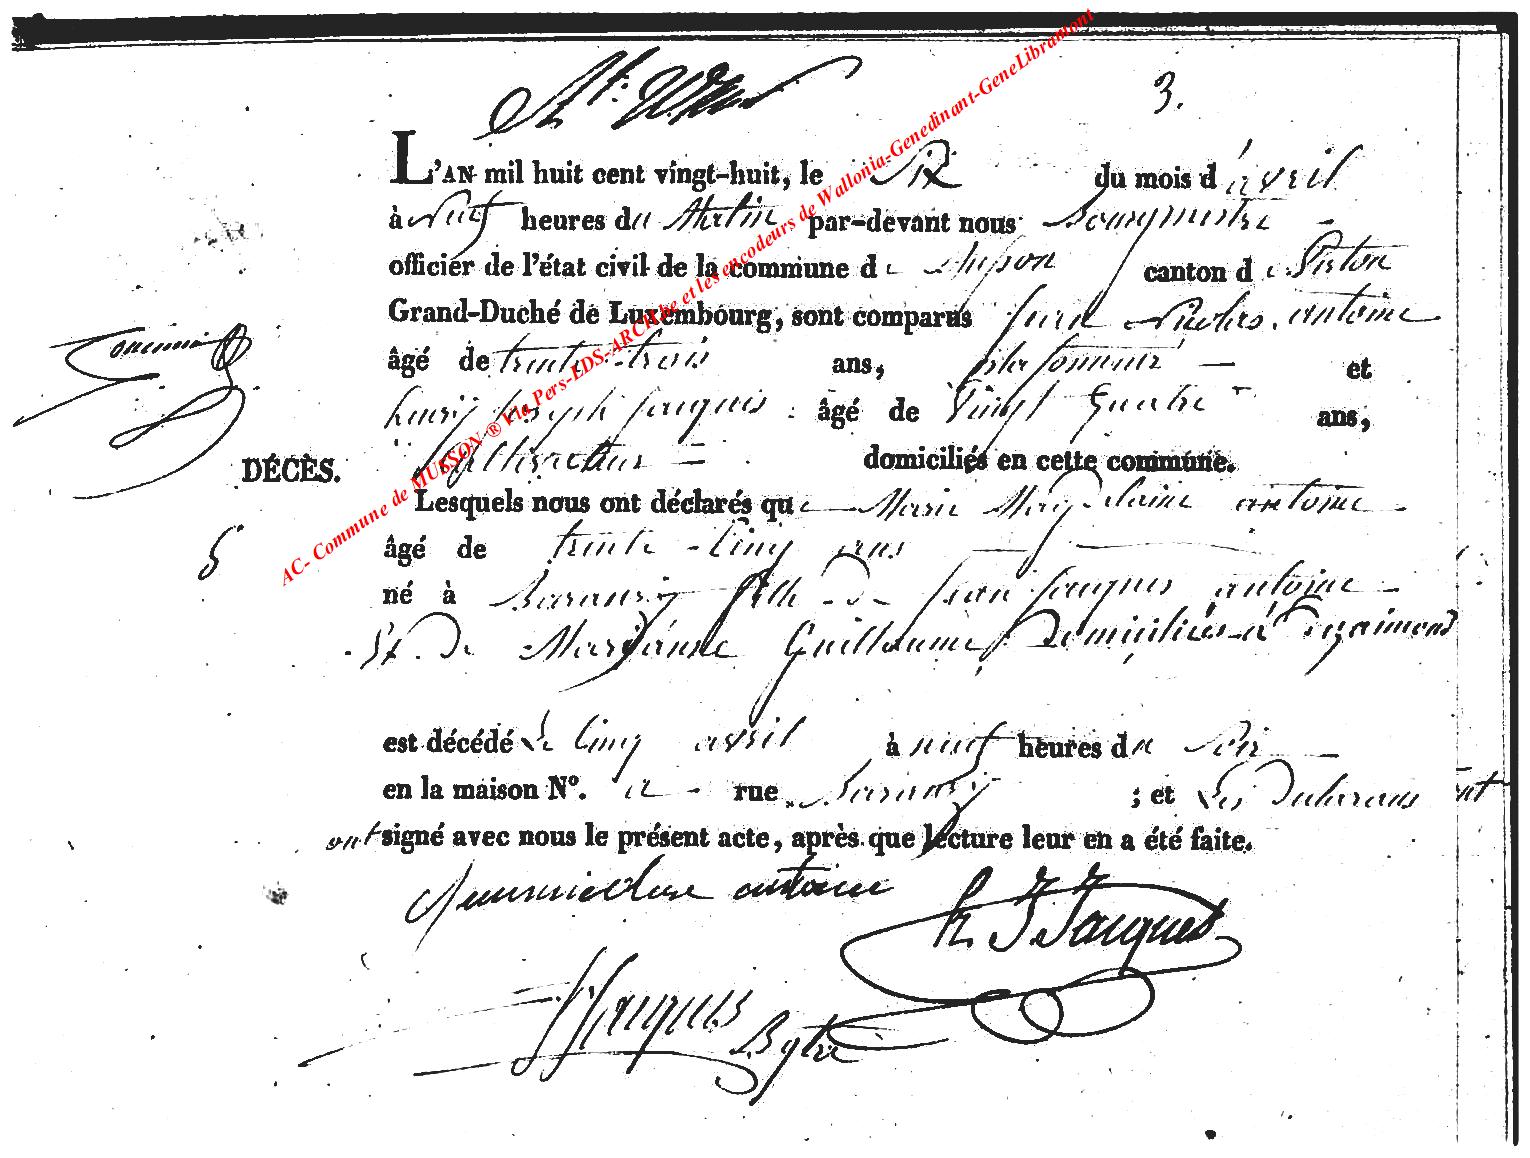 3.
L'AN mil huit cent vingt-huit, le Six du mois d'avril
à Neuf heures du Matin par-devant nous Bourgmestre
officier de l'état civil de la commune de Musson canton de Virton
Grand-Duché de Luxembourg, sont comparus Jean Nicolas antoine
âgé de trente-trois ans, et
henry Joseph Jacques âgé de Vingt Quatre ans,
DÉCÈS. Cultivateur domiciliés en cette commune.
Lesquels nous ont déclarés que Marie Magdelaine antoine
5 âgé de trente-Cinq ans
né à Baranzy fille de Jean Jacques antoine
Et de Marianne Guillaume, Domiciliés à
est décédé Le Cinq avril à neuf heures du Soir
en la maison N°. a rue Baranzy ; et Les Déclarans ont
ont signé avec nous le présent acte, après que lecture leur en a été faite.
antoine
h J Jacques
Jacques
Bgtre
AC- Commune de MUSSON ® Via Pers-EDS-ARCH.be et les encodeurs de Wallonia-Genedinant-GeneLibramont